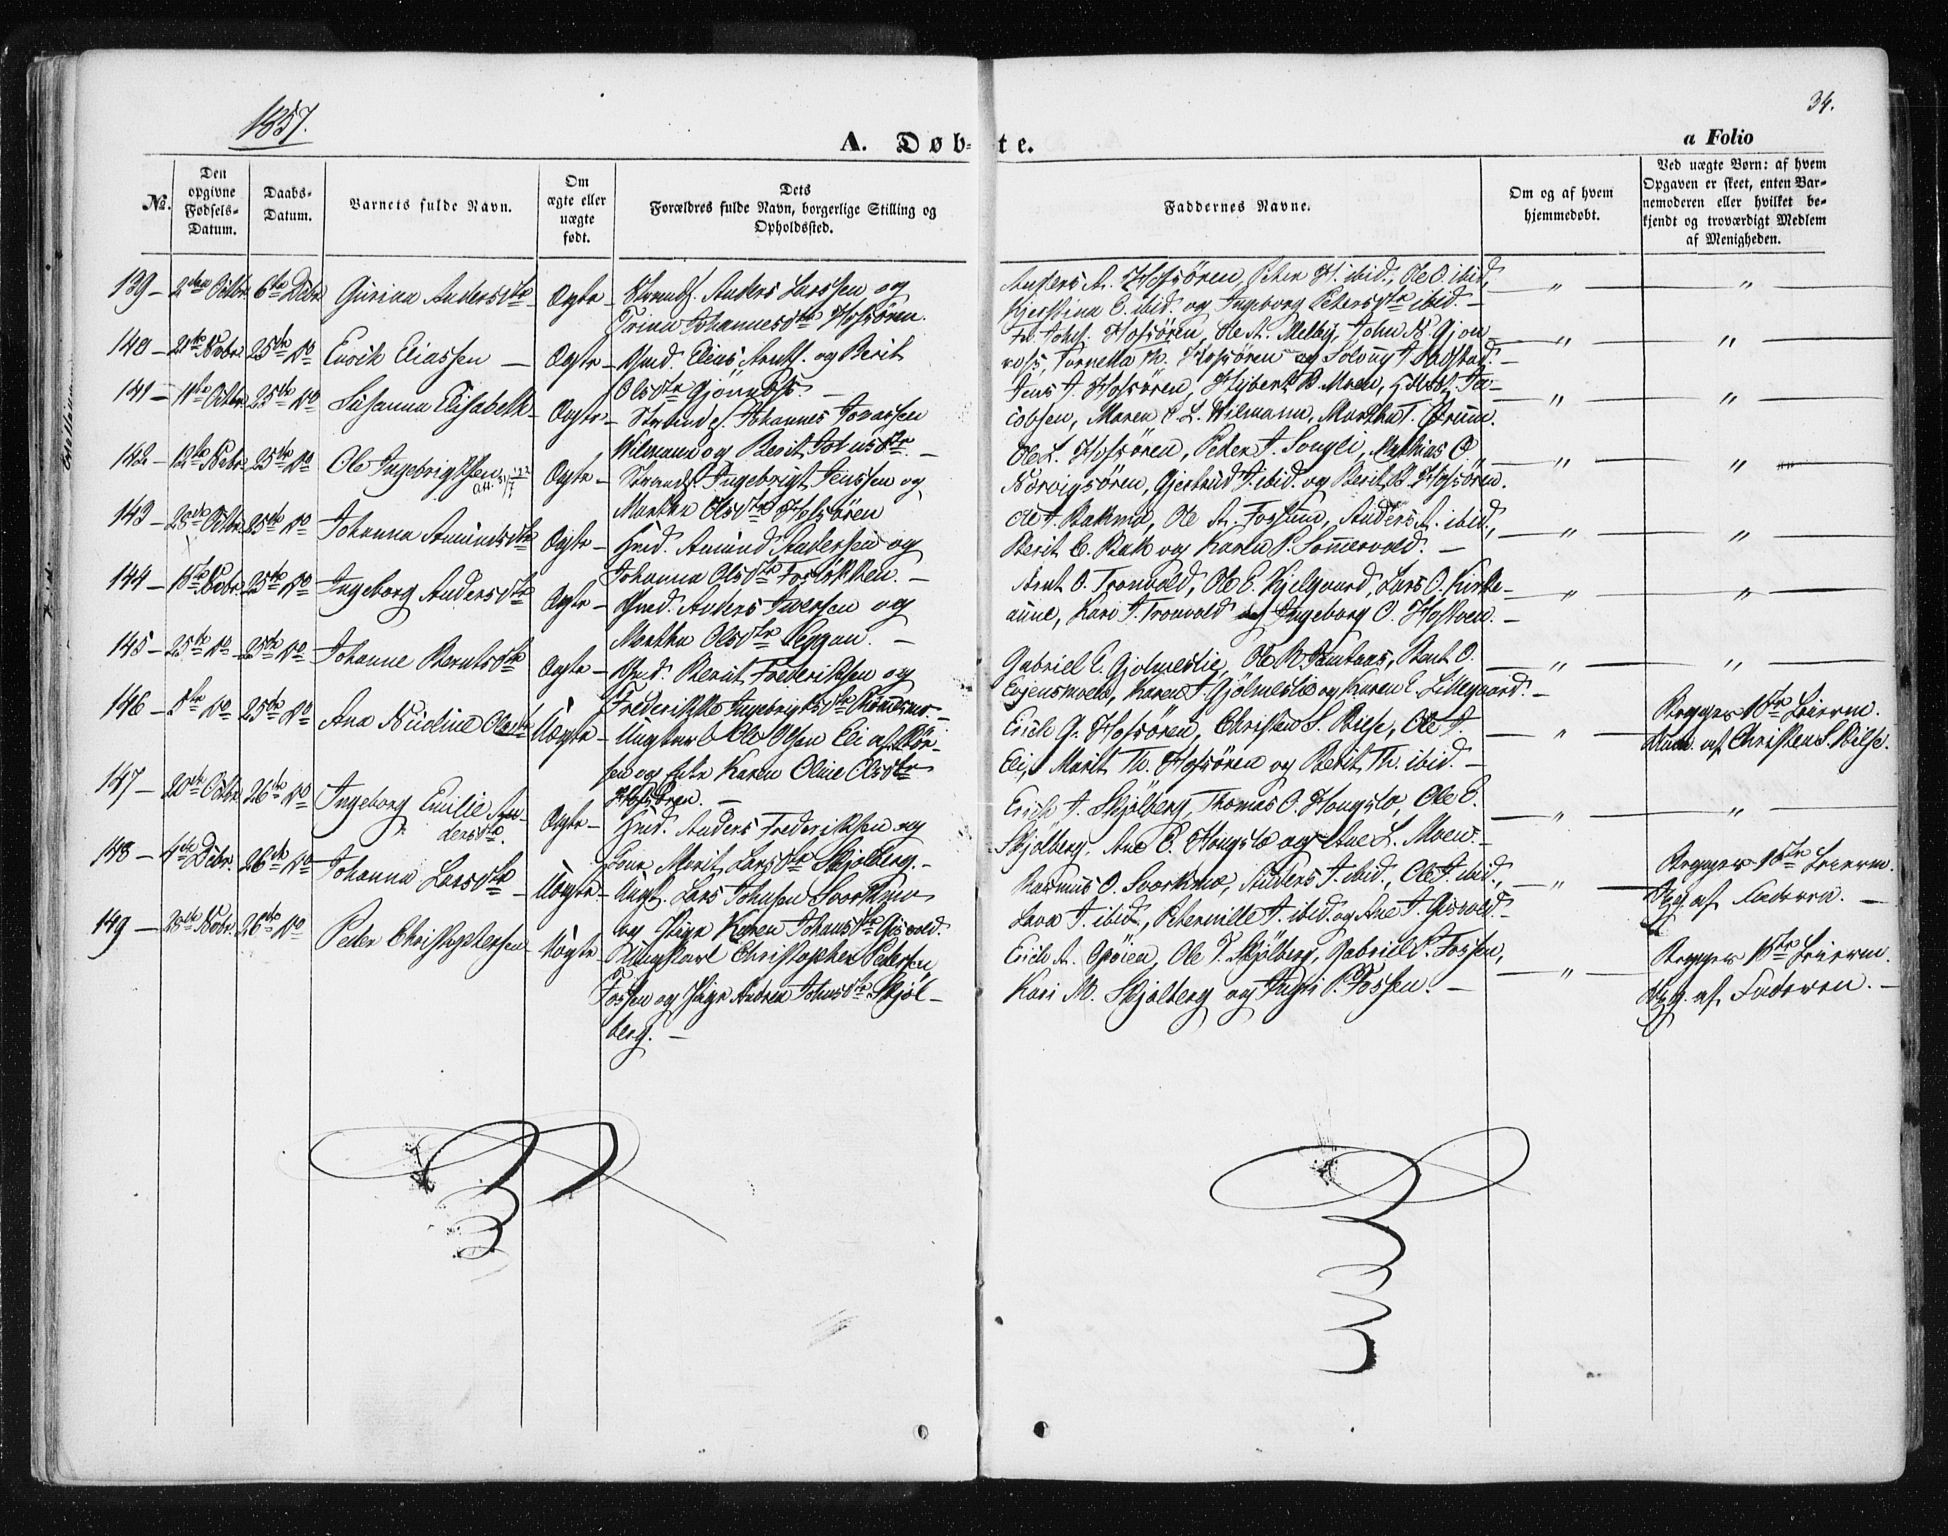 1857.
34.
A. Døb-
te.
a Folio
No.
Den opgivne Fødsels-Datum.
Daabs-Datum.
Barnets fulde Navn.
Om ægte eller uægte født.
Dets Forældres fulde Navn, borgerlige Stilling og Opholdssted.
Faddernes Navne.
Om og af hvem hjemmedøbt.
Ved uægte Børn: af hvem Opgaven er skeet, enten Barnemoderen eller hvilket bekjendt og troværdigt Medlem af Menigheden.
139 - 2den Octbr. 6te Debr. Gurina Andersdtr Ægte - Strands. Anders Larssen og
Trina Johannesdtr Hofsören.
Anders A. Hofsören, Peter H. ibid., Ole O. ibid,
Kjerstina E. ibid. og Ingeborg Petersdtr ibid. -
140 - Novbr. 25de Do Eliassen - Ægte - Hmd. Elias Arnts. og Berit
Olsdtr
Hofsören, Ole A. Melbÿ, John N.
Hofsören og Solvug
141 - 11te Octbr. 25de Do Susanna Elisabeth - Ægte - Johannes Jonassen
Wilmann og Berit
Jens J. Hofsören, B. Moen, Ja-
cobsen, Maren L. Wilmann, Martha T.
142 - 12te Nobr. 25de Do Ole Ingebrigtssen Ægte - Strands. Ingebrigt Jenssen og
Martha Olsdtr Hofsören
Ole L. Hofsören, Peder J. Songli, Mathias O.
Norvigsören, Gjertrud J. ibid. og Berit Hofsören.
143 - 28de Octbr. 25de Do Johanna Amundsdtr Ægte - Hmd. Amund Andersen og
Johanna Olsdtr -
Ole Bakmo, Ole A. Fossum, Anders A. ibid,
Berit E. Bak og Karen P. Sommervold. -
144 - 15de Nobr. 25de Do Ingeborg Andersdtr Ægte - Hmd. Anders Iversen og
Martha Olsdtr Leggan. -
Arnt O. Tronvold, Ole E. Kjelgaard, Lars O. Kirke-
aune, Kari J. Tronvold og Ingeborg O. Hoftven. -
145 - 25de Do 25de Do Johanne Berntsdtr Ægte - Hmd. Bernt Frederiksen og
Frederikke Ingebrigtsdtr
Gabriel E. Gjolmeslie, Ole Bent O.
Evjensmoen, Karen J. Gjölmeslie og Karen E. Lillegaard. -
146 - Do 25de Do Ane Nicoline Olsdtr Uægte - Ungkar Ole Olsen Eli af Bör-
sen og Pige Karen Oline Olsdtr
Hofsören. -
Erich G. Hofsören, Christen S. Bilse, Ole A.
Eli, Marit Th. Hofsören og Berit Th. ibid. -
Begges 1ste Leierm.
af Christen S. Bilse.
147 - 20de Octbr. 26de Do Ingeborg Emilie An-
dersdtr. Ægte - Hmd. Anders Frederiksen og
Marit Larsdtr Skjölberg. -
Erich A. Skjölberg, Thomas O. Hongslo, Ole E.
Skjölberg, Ane E. Hongslo og Ane L. Moen. -
148 - 4de Debr. 26de Do Johanna Larsdtr - Uægte - Ungk. Lars Johnsen Svorkmo
og Pige Karen Johansdtr Gisvold.
Rasmus O. Svorkmo, Anders J. ibid., Ole J. ibid.,
J. ibid., Peternille J. ibid. og Ane J. Gisvold -
Begges 1ste Leierm.
Opg. af Faderen. -
149 - 28de Nobr. 26de Do Peder Christophersen Uægte Ungkarl Christopher Pedersen
Fossen og Pige Andrea Johnsdtr Skjöl-
berg. -
Erich A. Opöien, Ole T. Skjölberg, Gabriel P. Fossen,
Kari M. Skjölberg og Ingri P. Fossen. -
Begges 1ste Leierm.
Opg. af Faderen. -